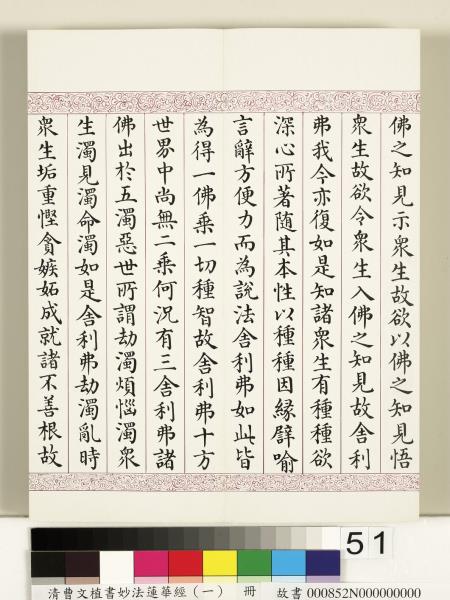 佛之知見示衆生故欲以佛之知見悟
衆生故欲令衆生入佛之知見故舍利
弗我今亦復如是知諸衆生有種種欲
深心所著隨其本性以種種因緣譬喻
言辭方便力而為說法舍利弗如此皆
為得一佛乘一切種智故舍利弗十方
世界中尚無二乘何況有三舍利弗諸
佛出於五濁惡世所謂劫濁煩惱濁衆
生濁見濁命濁如是舍利弗劫濁亂時
衆生垢重慳貪嫉妬成就諸不善根故
51
清曹文植書妙法蓮華經(一) 冊 故書 000852N000000000